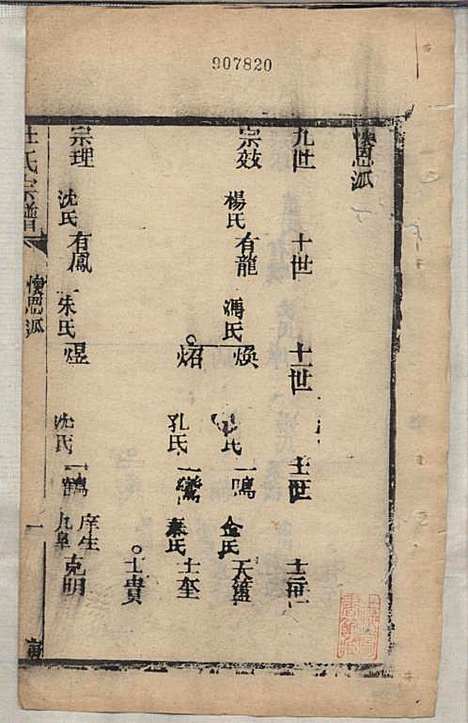 907820
懷恩派
九世 十世 十一世 十二世 十三世
宗效 楊氏 有龍 馮氏 煥 氏 一鳴 金氏 天
炤 孔氏 一鸞 秦氏 士奎
士貴
宗理 沈氏 有鳳 朱氏 煜 沈氏 一鶴 九臯 庠生 克明
杜氏宗譜 懷恩派 一